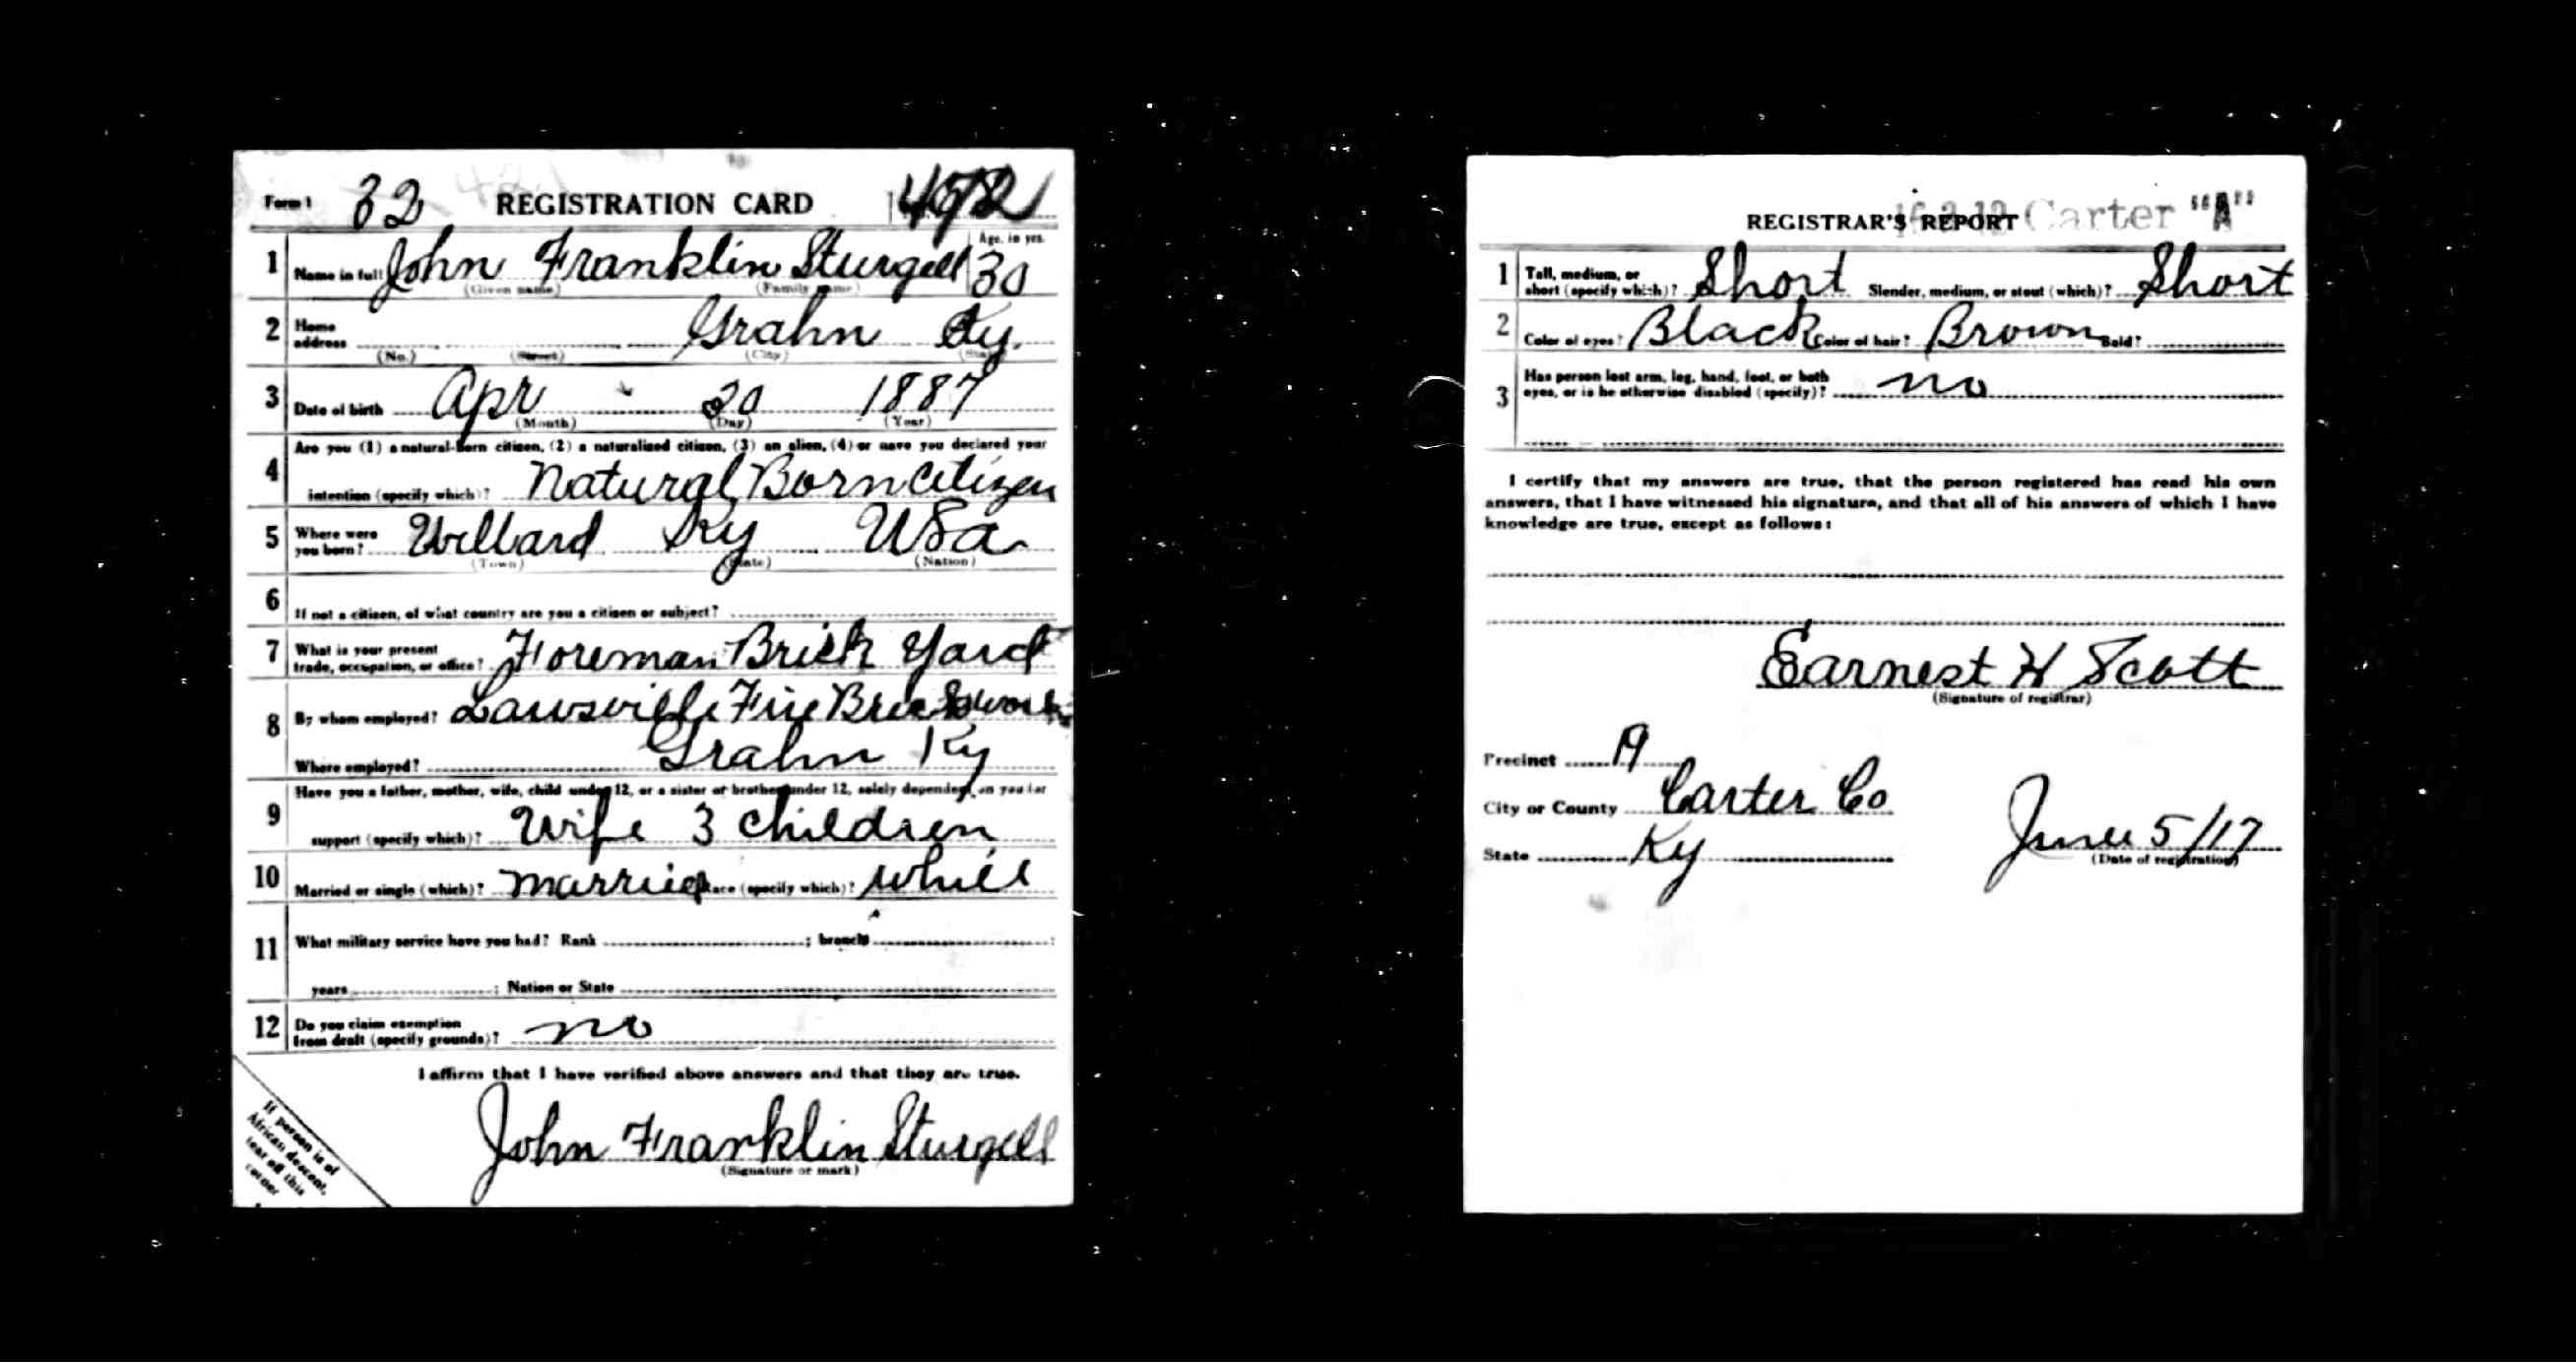 Form 1 32 REGISTRATION CARD
1 Name in full John Franklin Sturgell Age, in yrs. 30
(Given name) (Family name)
2 Home address Grahn Ky.
(No.) (Street) (City) (State)
3 Date of birth Apr 20 1887
(Month) (Day) (Year)
Are you (1) a natural-born citizen, (2) a naturalized citizen, (3) an alien, (4) or have you declared your
4 intention (specify which)? Natural Born Citizen
5 Where were you born? Willard Ky USa
(Town) (State) (Nation)
6 If not a citizen, of what country are you a citizen or subject?
7 What is your present trade, occupation, or office? Foreman Brick Yard
8 By whom employed? Fire Brick works
Where employed? Grahn Ky
Have you a father, mother, wife, child under 12, or a sister or brother under 12, solely dependent on you for
9 support (specify which)? Wife 3 children
10 Married or single (which)? married Race (specify which)? White
11 What military service have you had? Rank ; branch ;
years ; Nation or State
12 Do you claim exemption from draft (specify grounds)? no
I affirm that I have verified above answers and that they are true.
John Franklin Sturgell
(Signature or mark)
If person is of
African descent,
tear off this
corner
REGISTRAR'S REPORT Carter "A"
1 Tall, medium, or short (specify which)? Short Slender, medium, or stout (which)? Short
2 Color of eyes? Black Color of hair? Brown Bald?
3 Has person lost arm, leg, hand, foot, or both eyes, or is he otherwise disabled (specify)? no
I certify that my answers are true, that the person registered has read his own
answers, that I have witnessed his signature, and that all of his answers of which I have
knowledge are true, except as follows:
Earnest H Scott
(Signature of registrar)
Precinct 19
City or County Carter Co
State Ky June 5/17
(Date of registration)